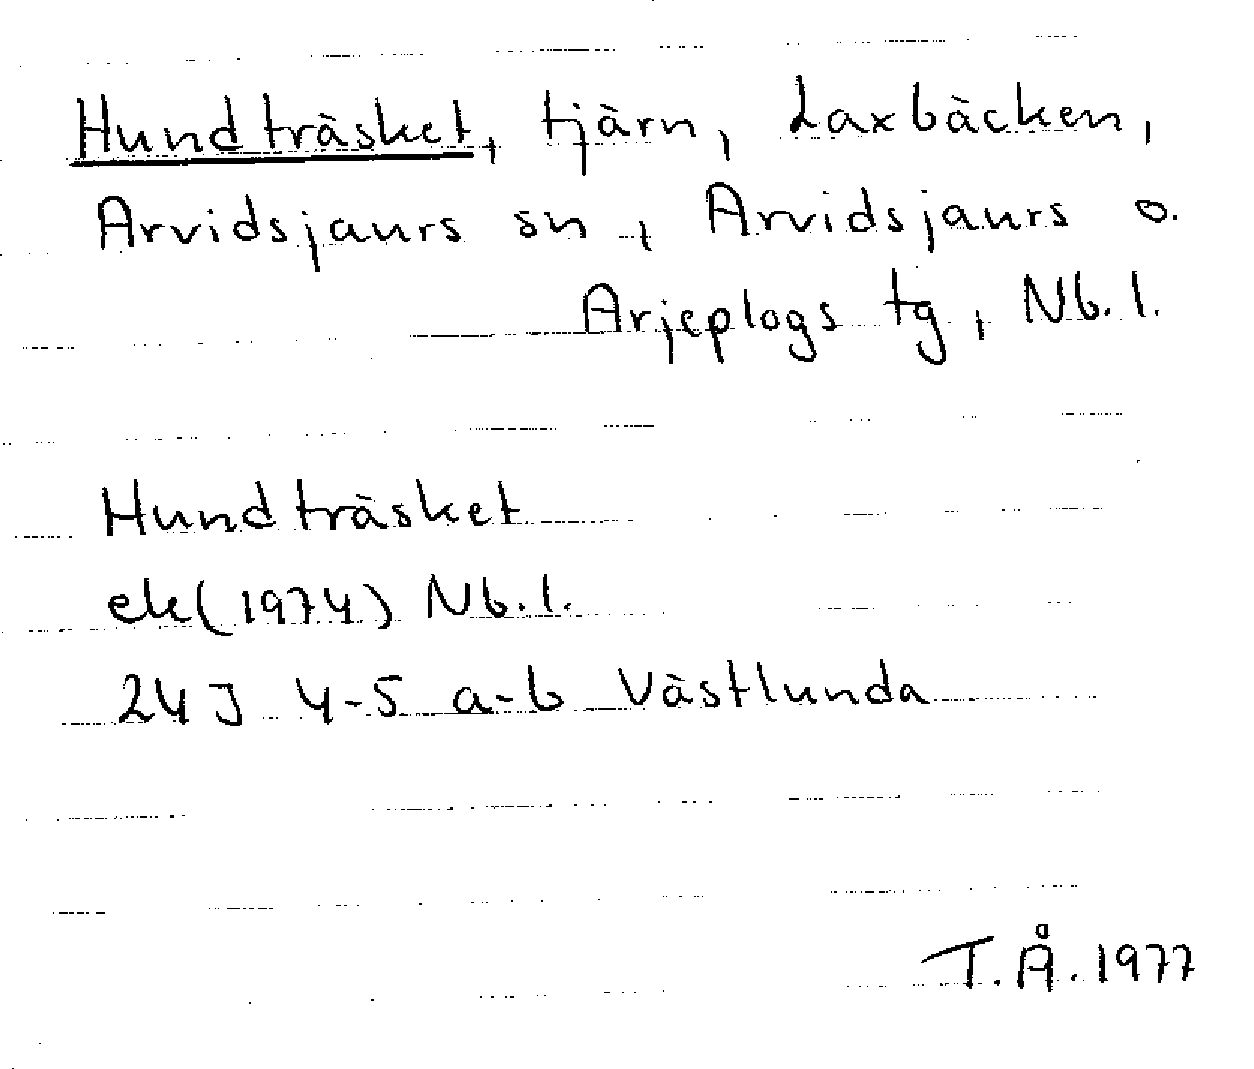 Hundträsket, tjärn, Laxbäcken,
Arvidsjaurs sn, Arvidsjaurs o.
Arjeplogs tg, Nb. l.
Hundträsket
ek(1974) Nb. l.
24J 4-5 a-b Västlunda
T.Å. 1977